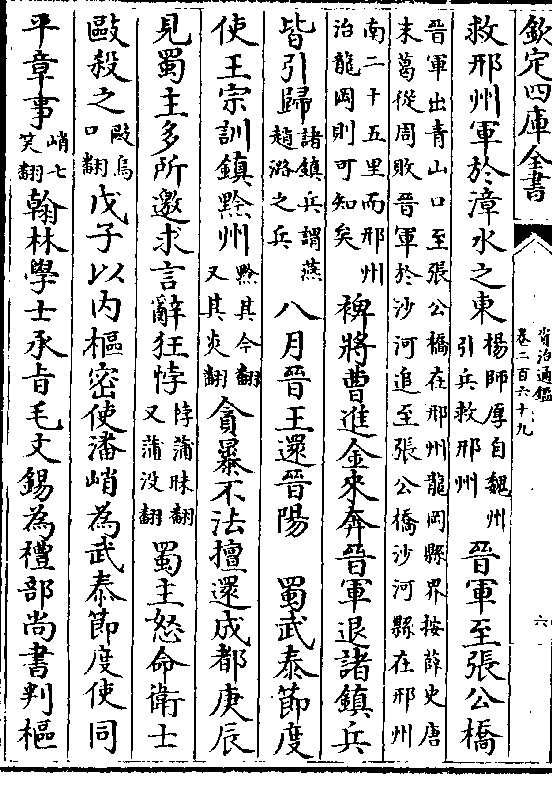 欽定四庫全書
資治通鑑
卷二百六十九
六
救邢州軍於漳水之東楊師厚自魏州引兵救邢州晉軍至張公橋
晉軍出青山口至張公橋在邢州龍岡縣界按薛史唐末葛從周敗晉軍於沙河追至張公橋沙河縣在邢州
南二十五里而邢州治龍岡則可知矣裨將曹進金來奔晉軍退諸鎮兵
皆引歸諸鎮兵謂燕趙潞之兵八月晉王還晉陽 蜀武泰節度
使王宗訓鎮黔州黔其今翻又其炎翻貪暴不法擅還成都庚辰
見蜀主多所邀求言辭狂悖悖蒲昧翻又蒲没翻蜀主怒命衛士
毆殺之毆烏口翻戊子以内樞密使潘峭為武泰節度使同
平章事峭七笑翻翰林學士承旨毛文錫為禮部尚書判樞